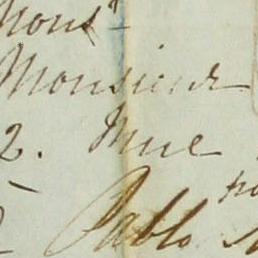 Monsr
Monsieur
2. Mue
Pablo